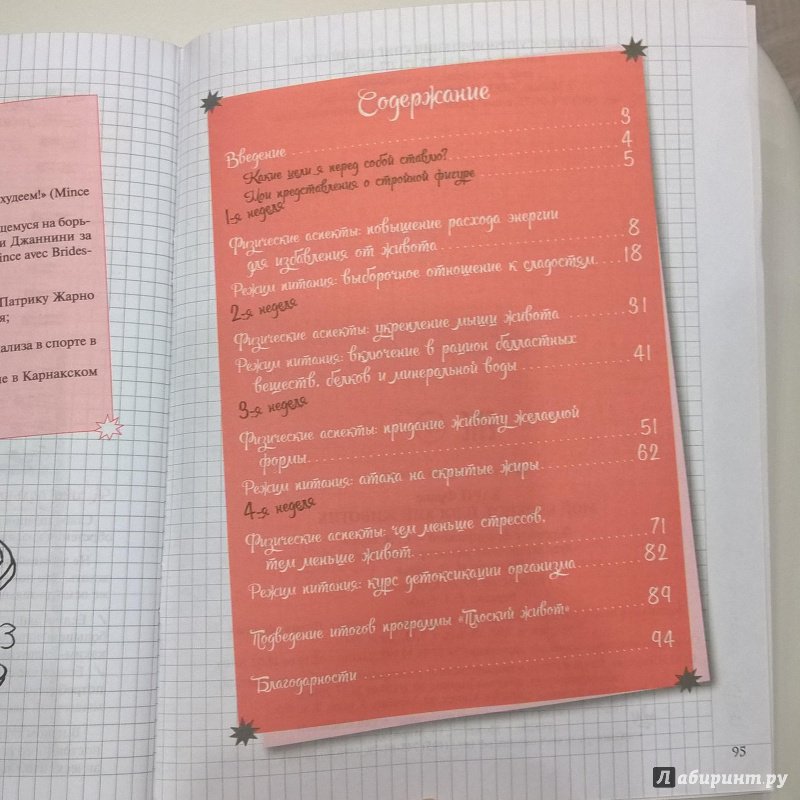 худеем!» (Mince
щемуся на борь-
и Джаннини за
ince avec Brides-
Патрику Жарно
я;
ализа в спорте в
не в Карнакском
3
Содержание
Введение 3
Какие цели я перед собой ставлю? 4
Мои представления о стройной фигуре 5
1-я неделя
Физические аспекты: повышение расхода энергии
для избавления от живота 8
Режим питания: выборочное отношение к сладостям 18
2-я неделя
Физические аспекты: укрепление мышц живота 31
Режим питания: включение в рацион балластных
веществ, белков и минеральной воды 41
3-я неделя
Физические аспекты: придание животу желаемой
формы 51
Режим питания: атака на скрытые жиры 62
4-я неделя
Физические аспекты: чем меньше стрессов,
тем меньше живот 71
Режим питания: курс детоксикации организма 82
Подведение итогов программы «Плоский живот» 89
Благодарности 94
95
Лабиринт.ру